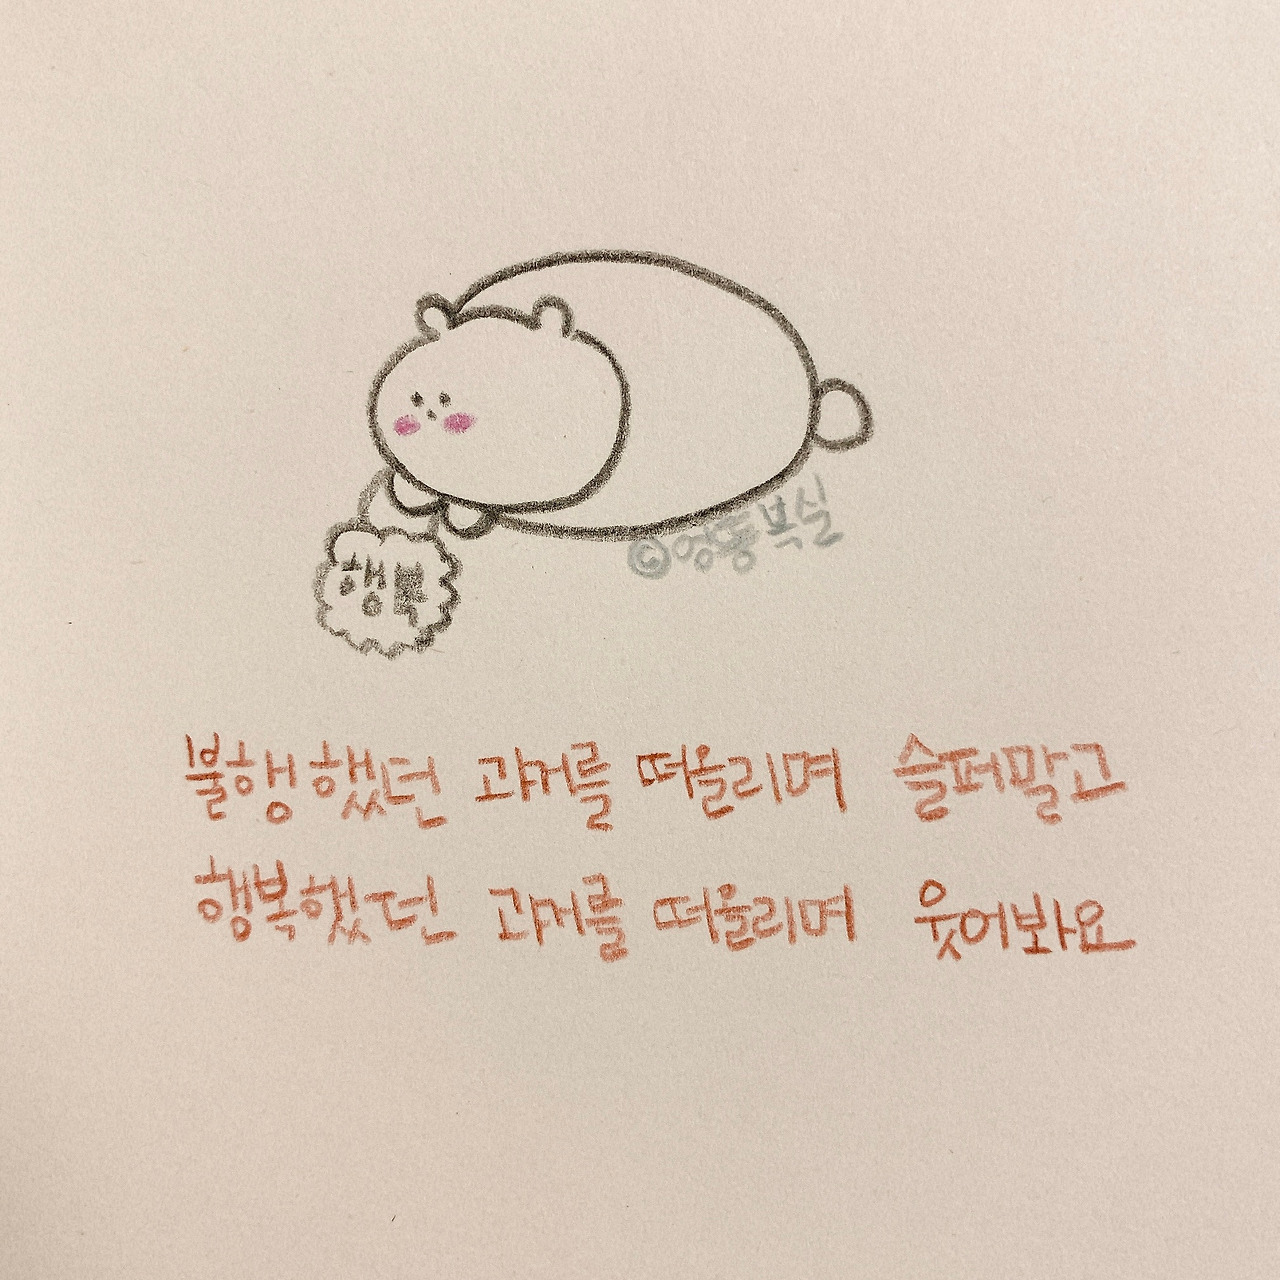 ©엉동복실
행복
불행했던 과거를 떠올리며 슬퍼말고
행복했던 과거를 떠올리며 웃어봐요